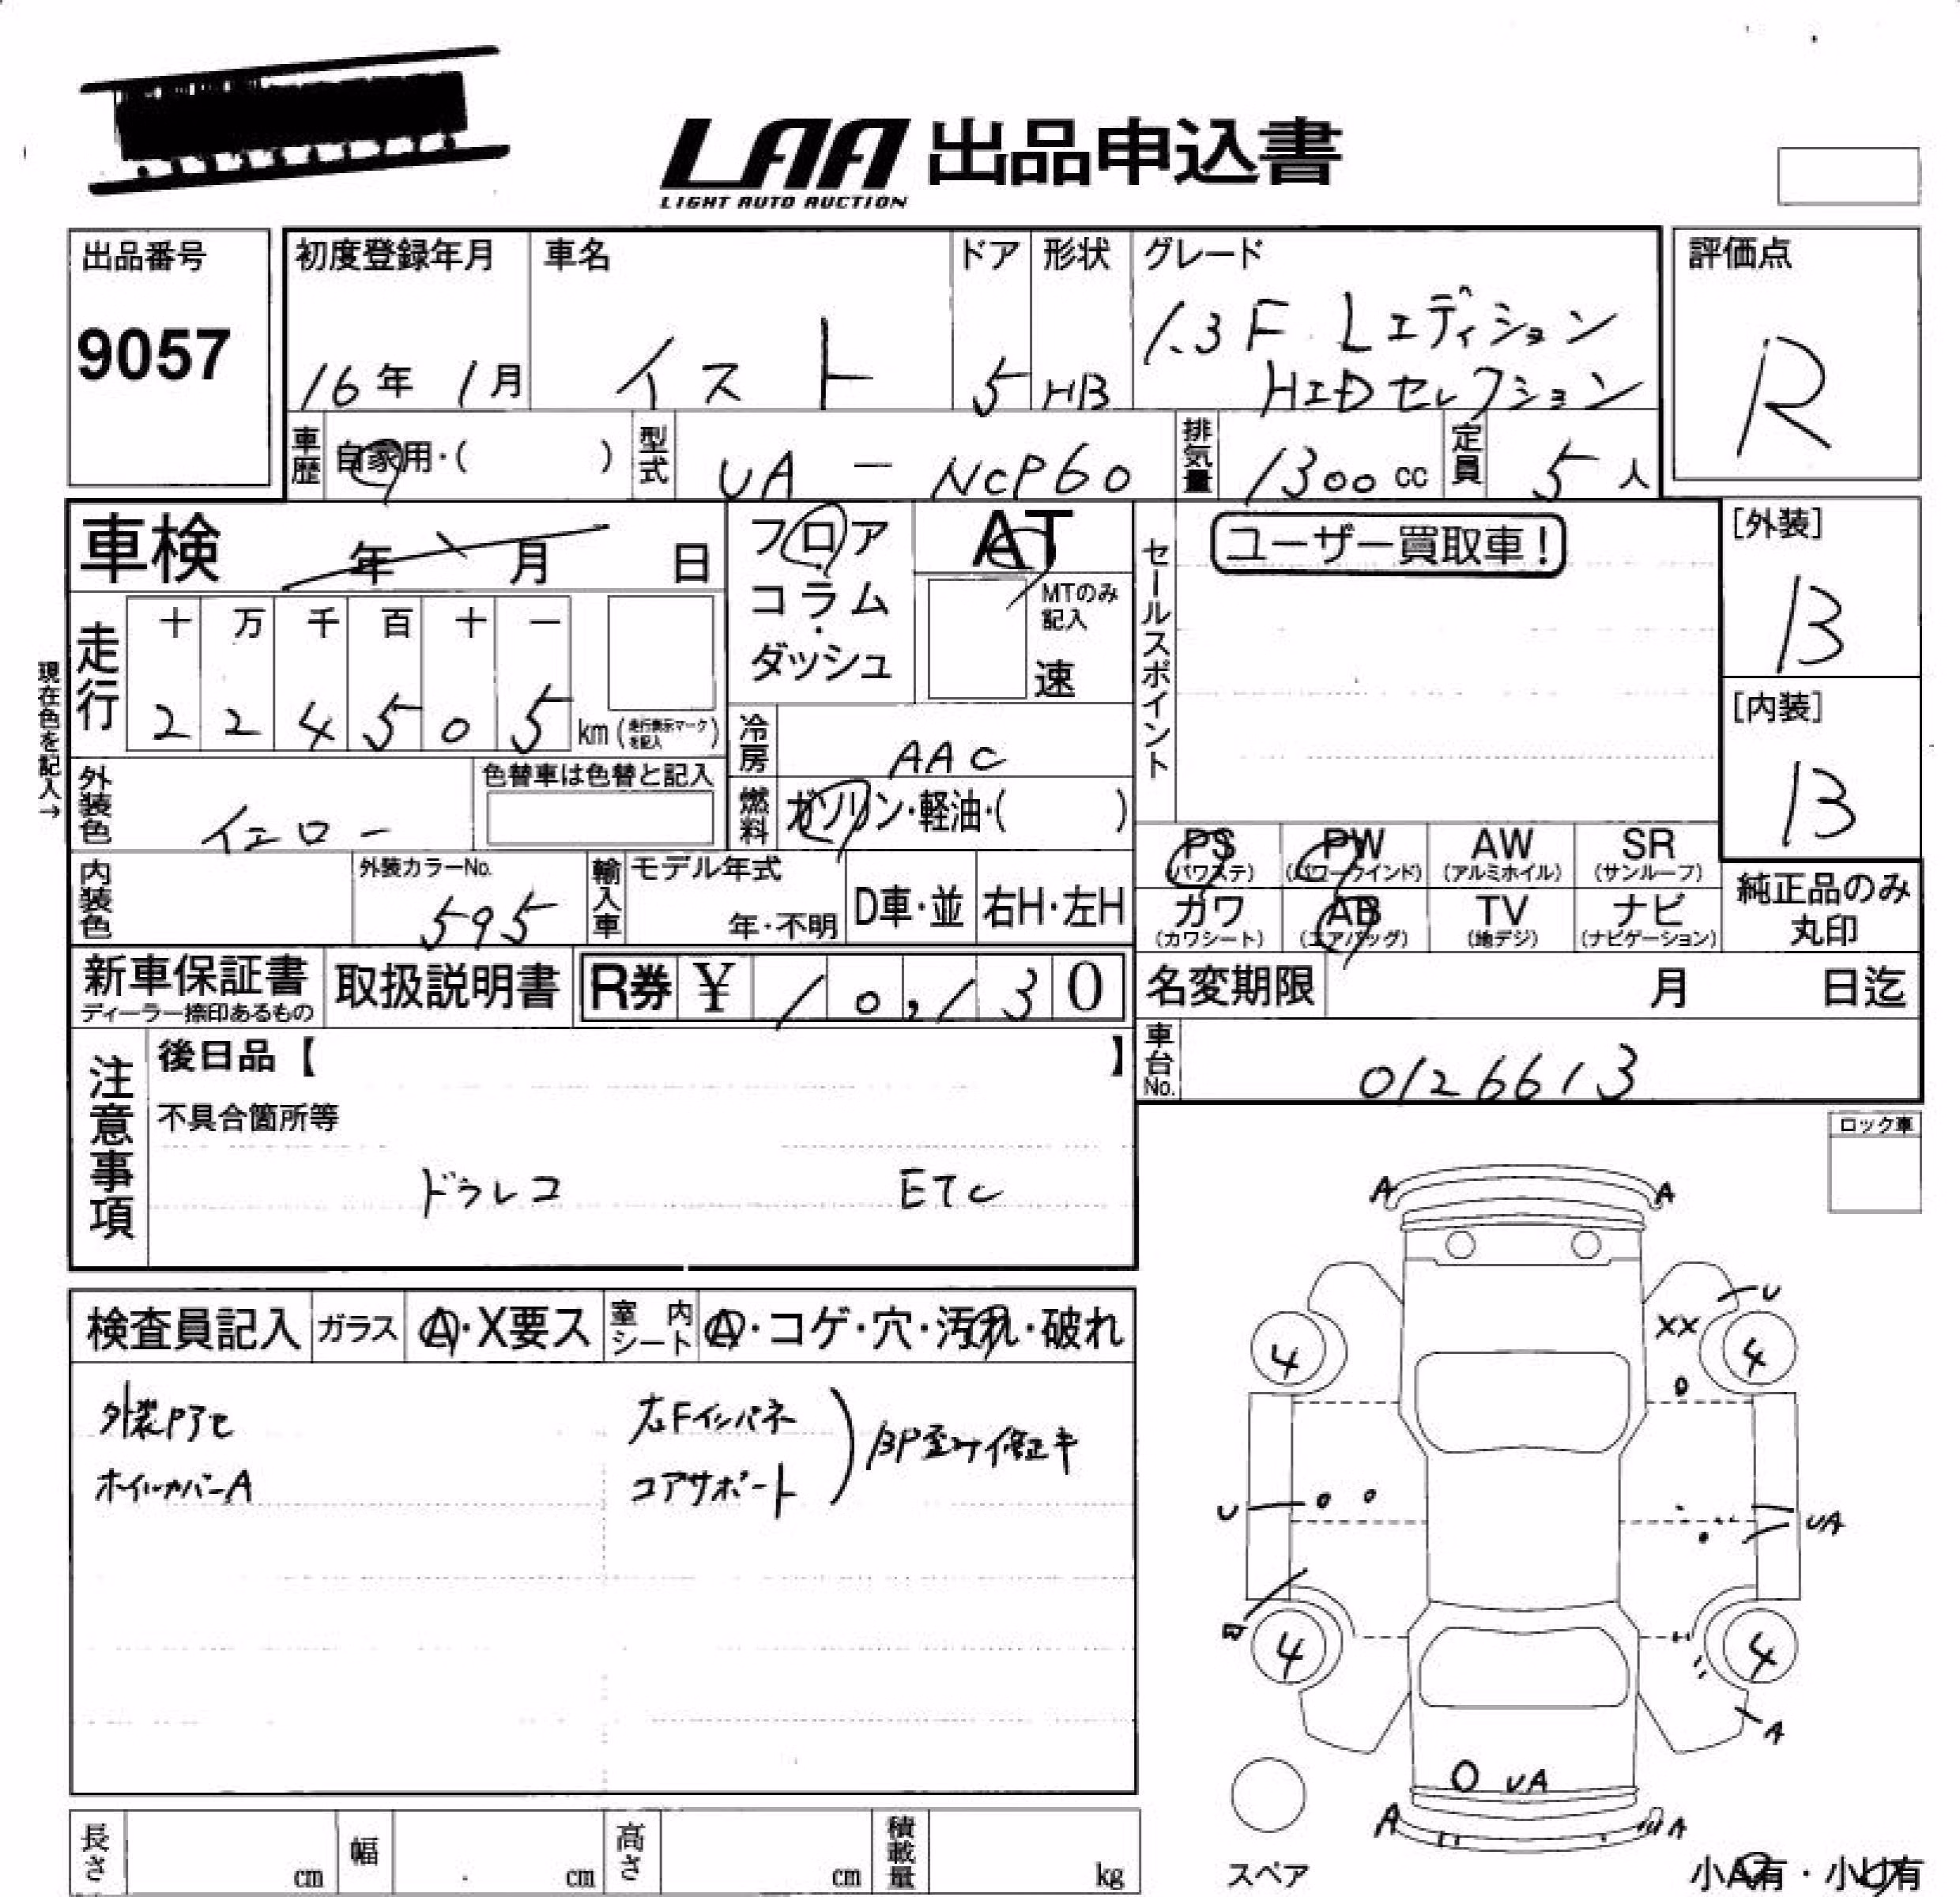 LAA 出品申込書
LIGHT AUTO AUCTION
出品番号
9057
初度登録年月
16年 1月
車名
イスト
ドア
5
形状
HB
グレード
1.3F Lエディション
HIDセレクション
評価点
R
車歴
自家用・( )
型式
UA - NCP60
排気量
1300 cc
定員
5人
車検
年 月 日
フロア
コラム
・
ダッシュ
AT
MTのみ
記入
速
セールスポイント
ユーザー買取車!
[外装]
B
[内装]
B
現在色を記入→
走行
十 万 千 百 十 一
2 2 4 5 0 5 km (走行表示マークを記入)
冷房
AAC
外装色
イエロー
色替車は色替と記入
燃料
ガソリン・軽油・( )
PS
(パワステ)
PW
(パワーウインド)
AW
(アルミホイル)
SR
(サンルーフ)
内装色
外装カラーNo.
595
輸入車
モデル年式
年・不明
D車・並
右H・左H
カワ
(カワシート)
AB
(エアバッグ)
TV
(地デジ)
ナビ
(ナビゲーション)
純正品のみ
丸印
新車保証書
ディーラー捺印あるもの
取扱説明書
R券 ¥ 10,130
名変期限
月 日迄
注意事項
後日品【 】
車台No.
0126613
不具合箇所等
ドラレコ ETC
ロック車
検査員記入
ガラス
A・X要ス
室内シート
A・コゲ・穴・汚れ・破れ
外装
ホイルカバーA
右Fインパネ
コアサポート
BP歪み修正キ
A A
U
XX
4 4
U
UA
4 4
A
UA
A A
スペア
小A有・小U有
長さ
cm
幅
cm
高さ
cm
積載量
kg